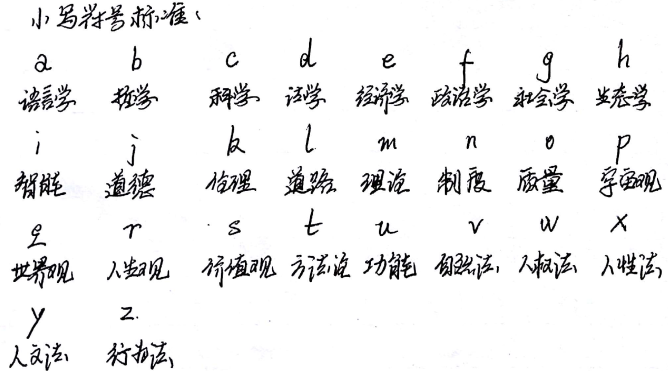 小写符号标准:
a b c d e f g h
语言学 哲学 科学 法学 经济学 政治学 社会学 生态学
i j k l m n o p
智能 道德 伦理 道路 理论 制度 质量 宇宙观
q r s t u v w x
世界观 人生观 价值观 方法论 功能 自然法 人权法 人性法
y z
人文法 行为法